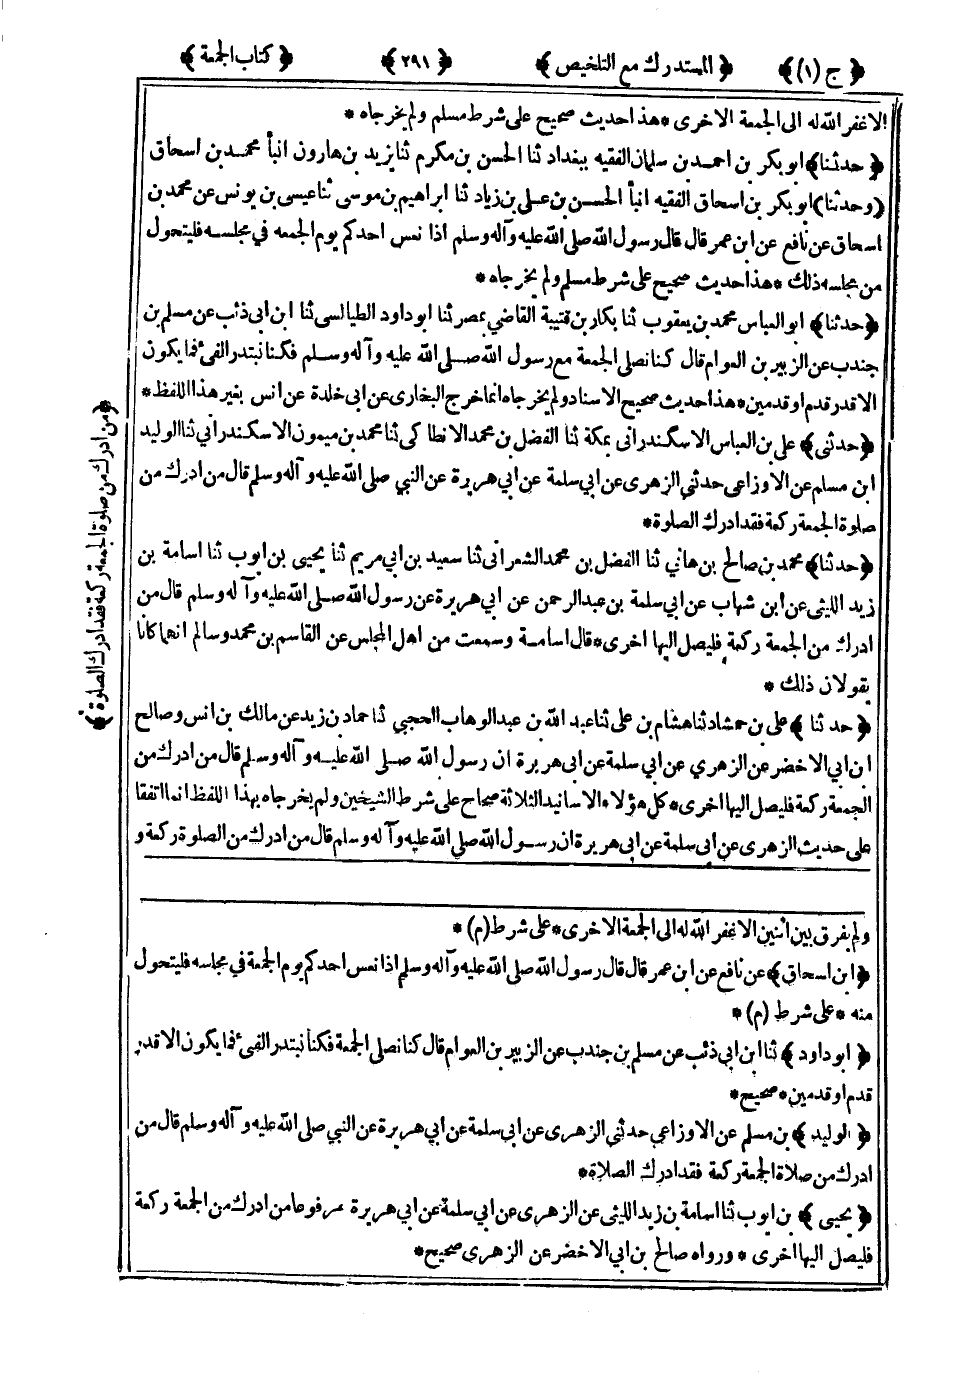 ﴿ ج (١) ﴾ ﴿ المستدرك مع التلخيص ﴾ ﴿ ٢٩١ ﴾ ﴿ كتاب الجمعة ﴾
الا غفر الله له الى الجمعة الاخرى * هذا حديث صحيح على شرط مسلم ولم يخرجاه *
﴿ حدثنا ﴾ ابو بكر بن احمد بن سلمان الفقيه ببغداد ثنا الحسن بن مكرم ثنا يزيد بن هارون انبأ محمد بن اسحاق
(وحدثنا) ابو بكر بن اسحاق الفقيه انبأ الحسن بن على بن زياد ثنا ابراهيم بن موسى ثنا عيسى بن يونس عن محمد بن
اسحاق عن نافع عن ابن عمر قال قال رسول الله صلى الله عليه وآله وسلم اذا نعس احدكم يوم الجمعه في مجلسه فليتحول
من مجلسه ذلك * هذا حديث صحيح على شرط مسلم ولم يخرجاه *
﴿ حدثنا ﴾ ابو العباس محمد بن يعقوب ثنا بكار بن قتيبة القاضي بمصر ثنا ابو داود الطيالسى ثنا ابن ابى ذئب عن مسلم بن
جندب عن الزبير بن العوام قال كنا نصلى الجمعة مع رسول الله صلى الله عليه وآله وسلم فكنا نبتدر الفئ فما يكون
الا قدر قدم او قدمين * هذا حديث صحيح الاسناد ولم يخرجاه انما خرج البخارى عن ابى خلدة عن انس بغير هذا اللفظ *
﴿ حدثنى ﴾ على بن العباس الاسكندرانى بمكة ثنا الفضل بن محمد الانطاكى ثنا محمد بن ميمون الاسكندراني ثنا الوليد
ابن مسلم عن الاوزاعى حدثني الزهرى عن ابي سلمة عن ابي هريرة عن النبي صلى الله عليه وآله وسلم قال من ادرك من
صلوة الجمعة ركعة فقد ادرك الصلوة *
﴿ حدثنا ﴾ محمد بن صالح بن هاني ثنا الفضل بن محمد الشعرانى ثنا سعيد بن ابي مريم ثنا يحيى بن ايوب ثنا اسامة بن
زيد الليثى عن ابن شهاب عن ابي سلمة بن عبد الرحمن عن ابي هريرة عن رسول الله صلى الله عليه وآله وسلم قال من
ادرك من الجمعة ركعة فليصل اليها اخرى * قال اسامة وسمعت من اهل المجلس عن القاسم بن محمد وسالم انهما كانا
يقولان ذلك *
﴿ حدثنا ﴾ على بن حمشاد ثنا هشام بن على ثنا عبد الله بن عبد الوهاب الحجبي ثنا حماد بن زيد عن مالك بن انس وصالح
ابن ابي الاخضر عن الزهري عن ابي سلمة عن ابى هريرة ان رسول الله صلى الله عليه وآله وسلم قال من ادرك من
الجمعة ركعة فليصل اليها اخرى * كل هؤلاء الاسانيد الثلاثة صحاح على شرط الشيخين ولم يخرجاه بهذا اللفظ انما اتفقا
على حديث الزهرى عن ابى سلمة عن ابى هريرة ان رسول الله صلى الله عليه وآله وسلم قال من ادرك من الصلوة ركعة و
﴿ من ادرك من صلوة الجمعة ركعة فقد ادرك الصلوة ﴾
ولم يفرق بين اثنين الا غفر الله له الى الجمعة الاخرى * على شرط (م) *
﴿ ابن اسحاق ﴾ عن نافع عن ابن عمر قال قال رسول الله صلى الله عليه وآله وسلم اذا نعس احدكم يوم الجمعة في مجلسه فليتحول
منه * على شرط (م) *
﴿ ابو داود ﴾ ثنا ابن ابي ذئب عن مسلم بن جندب عن الزبير بن العوام قال كنا نصلى الجمعة فكنا نبتدر الفئ فما يكون الا قدر
قدم او قدمين * صحيح *
﴿ الوليد ﴾ بن مسلم عن الاوزاعي حدثني الزهرى عن ابى سلمة عن أبي هريرة عن النبي صلى الله عليه وآله وسلم قال من
ادرك من صلاة الجمعة ركعة فقد ادرك الصلاة *
﴿ يحيى ﴾ بن ايوب ثنا اسامة بن زيد الليثى عن الزهرى عن ابي سلمة عن ابي هريرة مرفوعا من ادرك من الجمعة ركعة
فليصل اليها اخرى * ورواه صالح بن ابي الاخضر عن الزهرى صحيح *